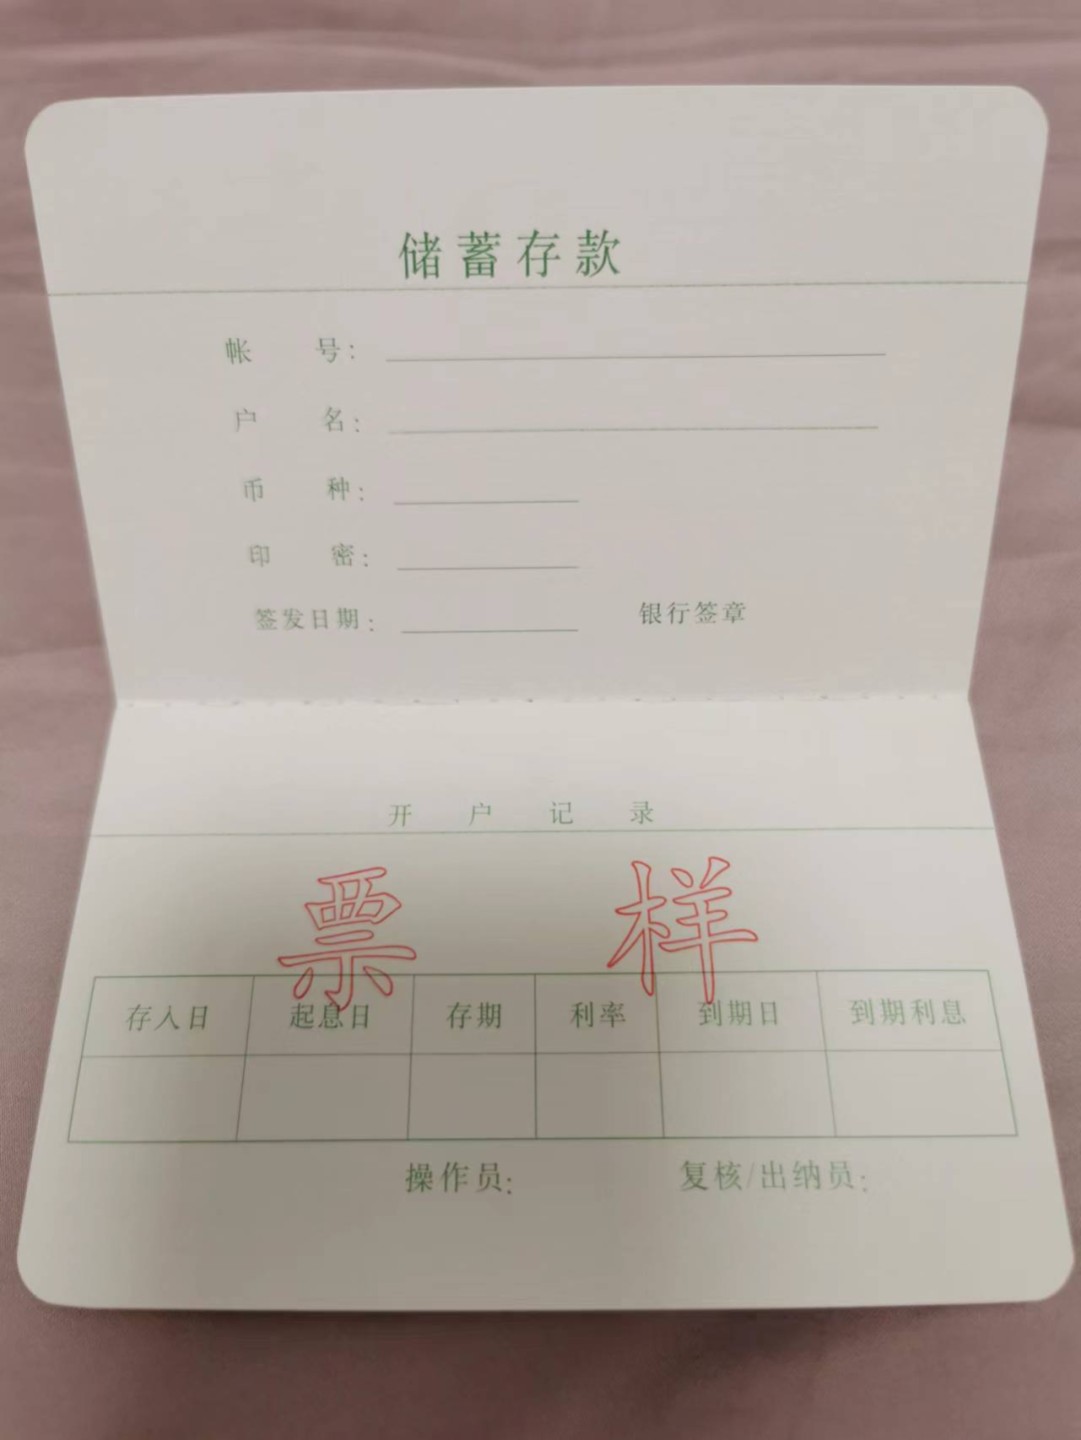 储蓄存款
帐 号：
户 名：
币 种：
印 密：
签发日期： 银行签章
开 户 记 录
票 样
存入日 起息日 存期 利率 到期日 到期利息
操作员： 复核/出纳员：